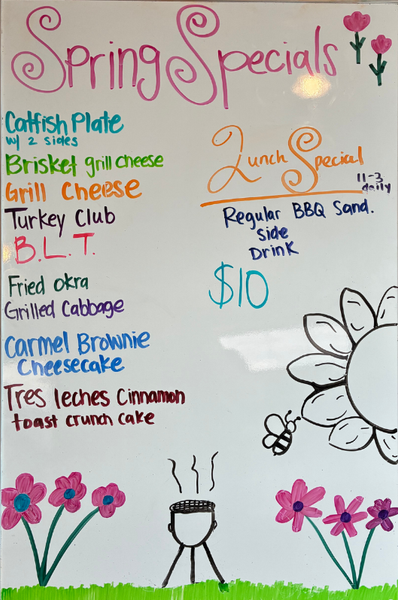 Spring Specials
Catfish Plate
w/ 2 sides
Brisket grill cheese
Grill Cheese
Turkey Club
B.L.T.
Fried Okra
Grilled Cabbage
Carmel Brownie
Cheesecake
Tres leches Cinnamon
toast crunch cake
Lunch Special
11-3
daily
Regular BBQ Sand.
Side
Drink
$10